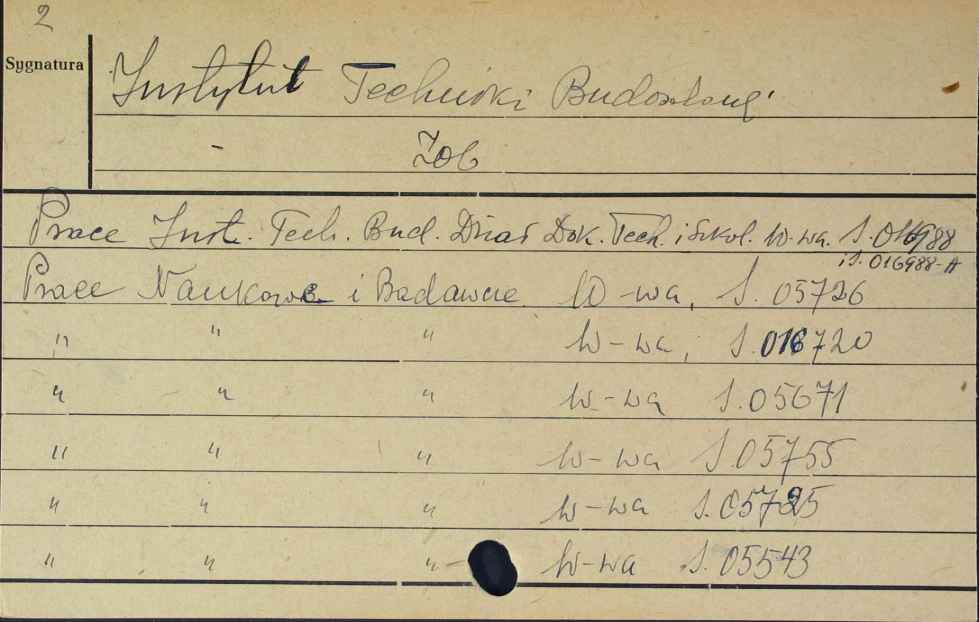 2
Sygnatura
Instytut Techniki Budowlanej
- Zob
Prace Inst. Tech. Bud. Dział Dok. Tech. i Szkol. W-wa. S. 016988
i S. 016988-A
Prace Naukowe i Badawcze W-wa, S. 05726
" " " W-wa, S. 016720
" " " W-wa S. 05671
" " " W-wa S. 05755
" " " W-wa S. 05725
" " " - W-wa S. 05543